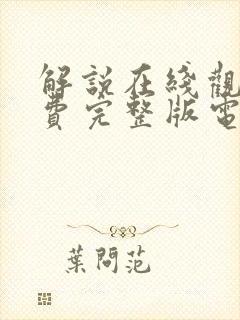 解說在綫觀
費完整版電
葉問范